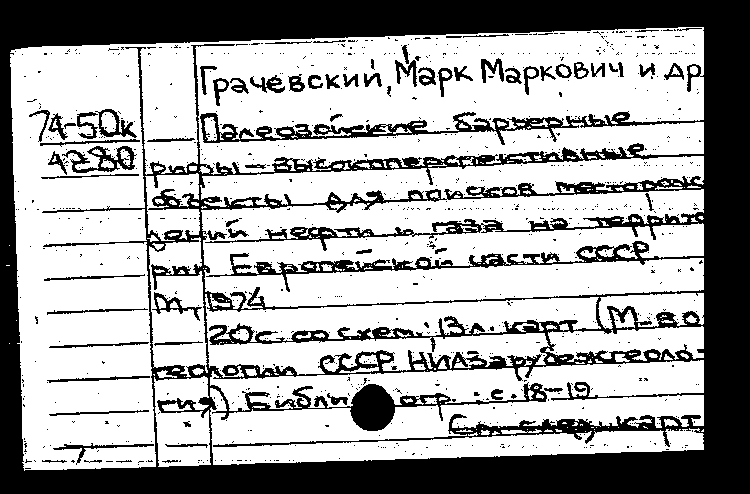 Грачевский, Марк Маркович и др
74-50к Палеозойские барьерные
4280 рифы — высокоперспективные
объекты для поисков месторож
дений нефти и газа на террито
рии Европейской части СССР.
М., 1974.
20 с. со схем.; 13 л. карт (М-во
геологии СССР. НИЛЗарубежгеоло-
гия). Библиогр.: с. 18-19.
См. след. карт